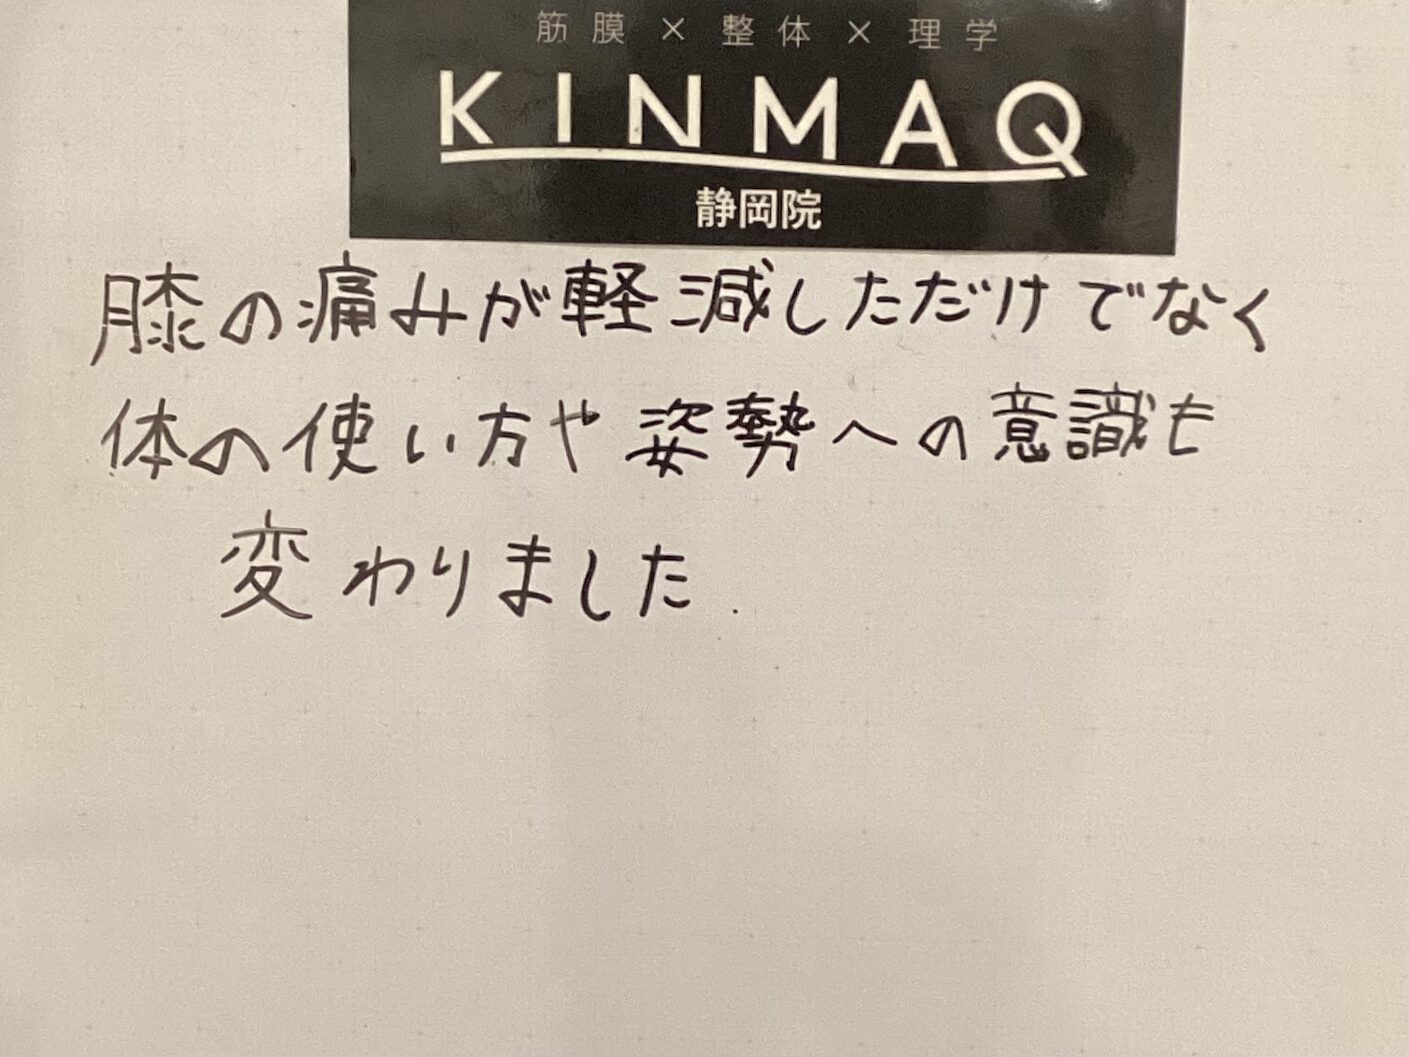 筋膜×整体×理学
KINMAQ
静岡院
膝の痛みが軽減しただけでなく
体の使い方や姿勢への意識も
変わりました